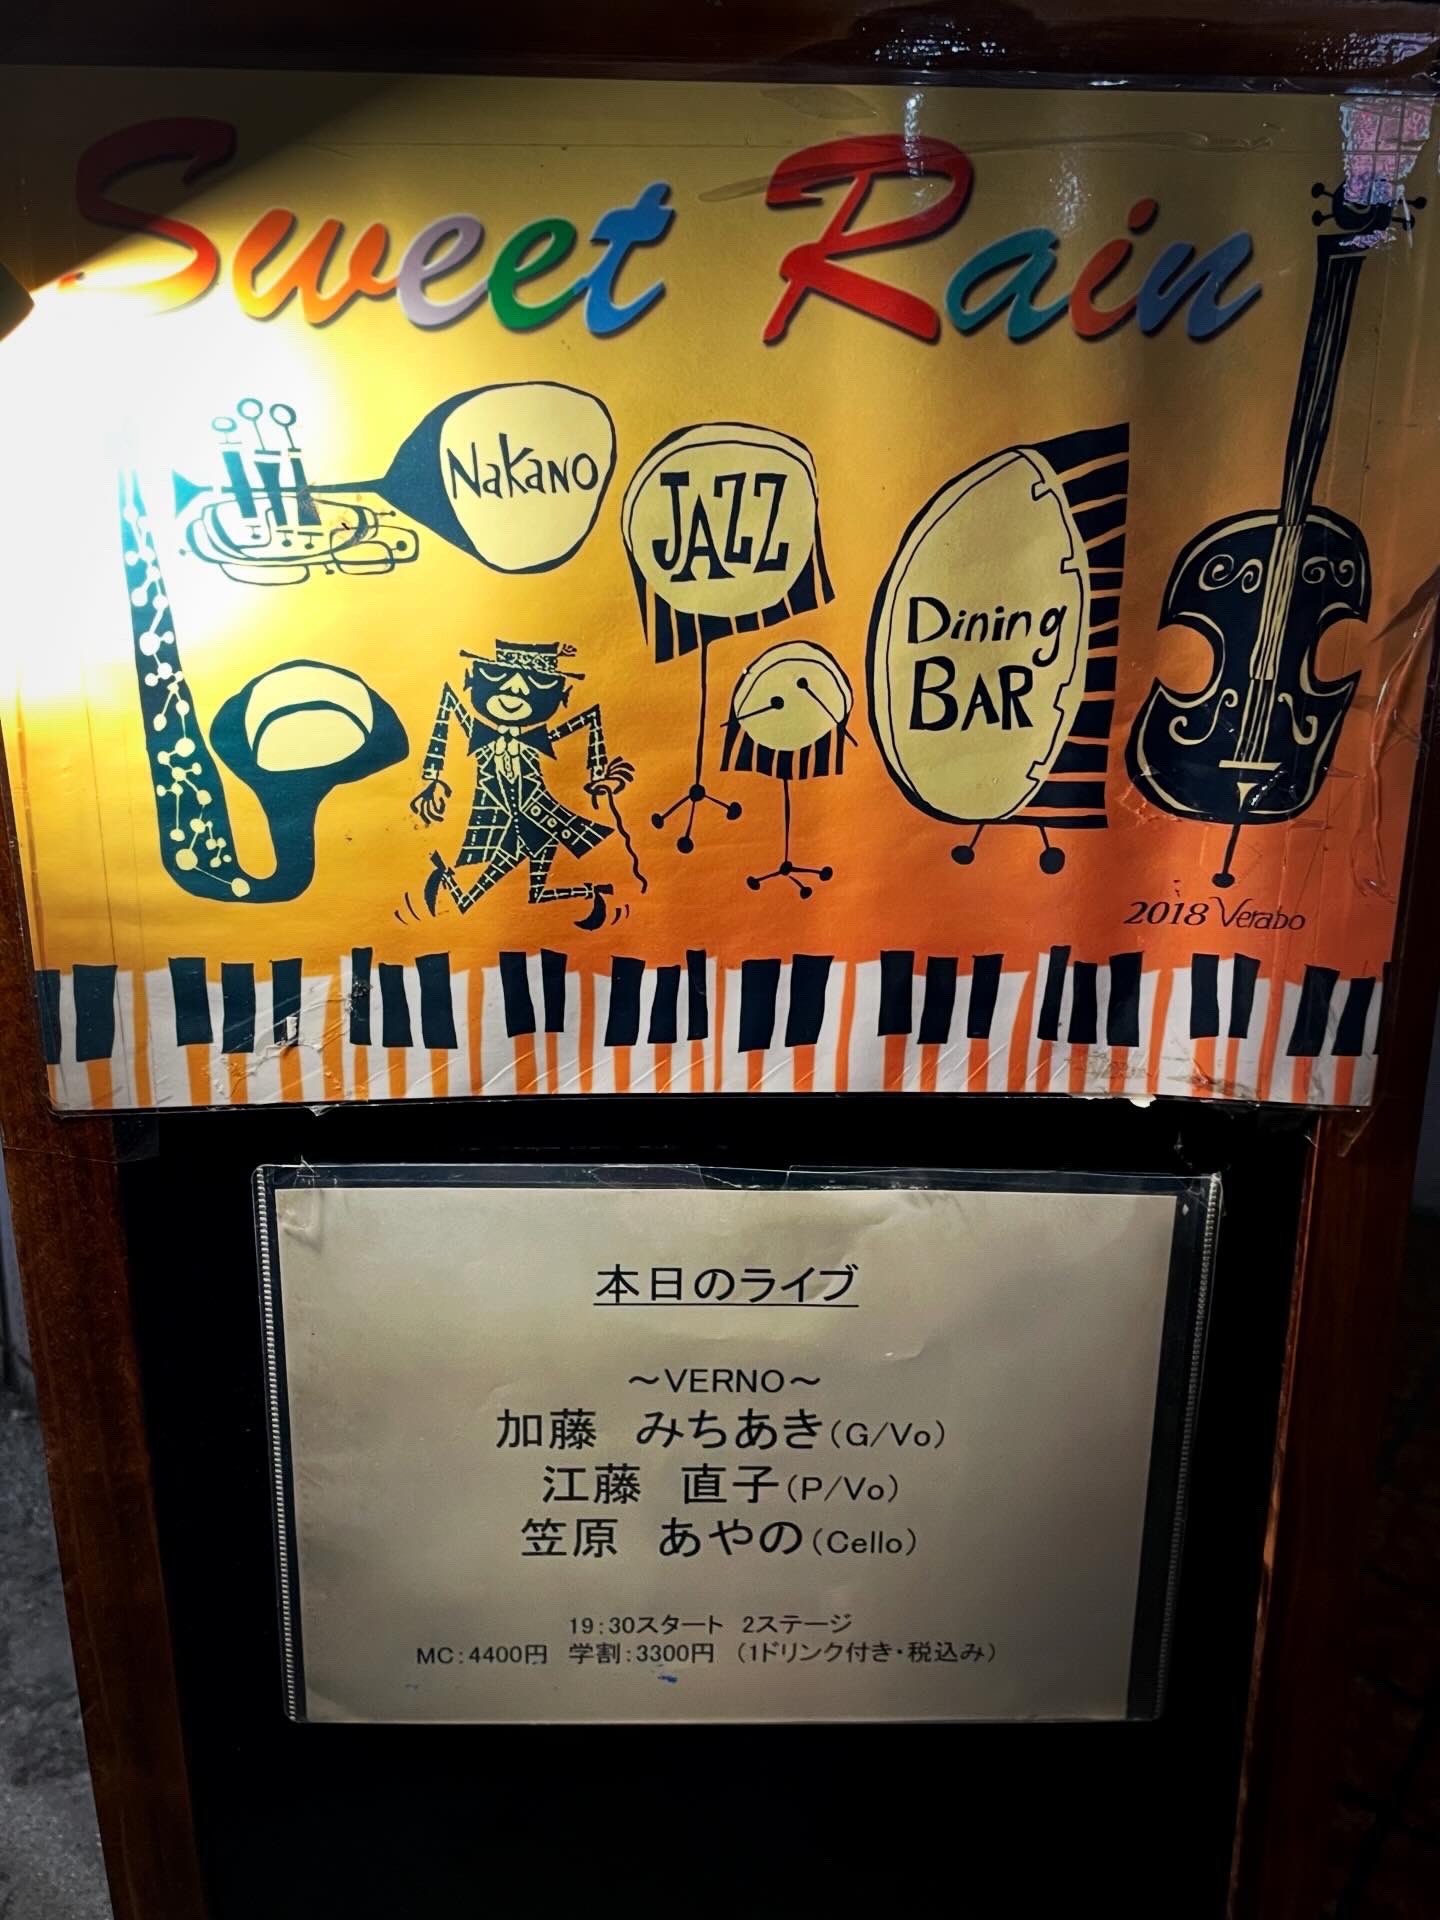 Sweet Rain
Nakano
JAZZ
Dining
BAR
2018 Verabo
本日のライブ
～VERNO～
加藤　みちあき(G/Vo)
江藤　直子(P/Vo)
笠原　あやの(Cello)
19:30スタート　2ステージ
MC:4400円　学割:3300円　(1ドリンク付き・税込み)